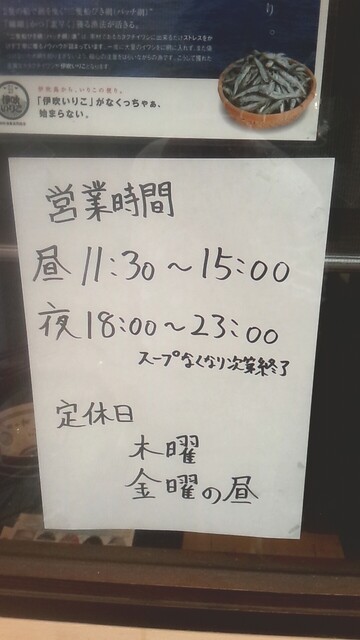 伊吹いりこ
「伊吹いりこ」がなくっちゃぁ、
始まらない。
営業時間
昼 11:30～15:00
夜 18:00～23:00
スープなくなり次第終了
定休日
木曜
金曜の昼